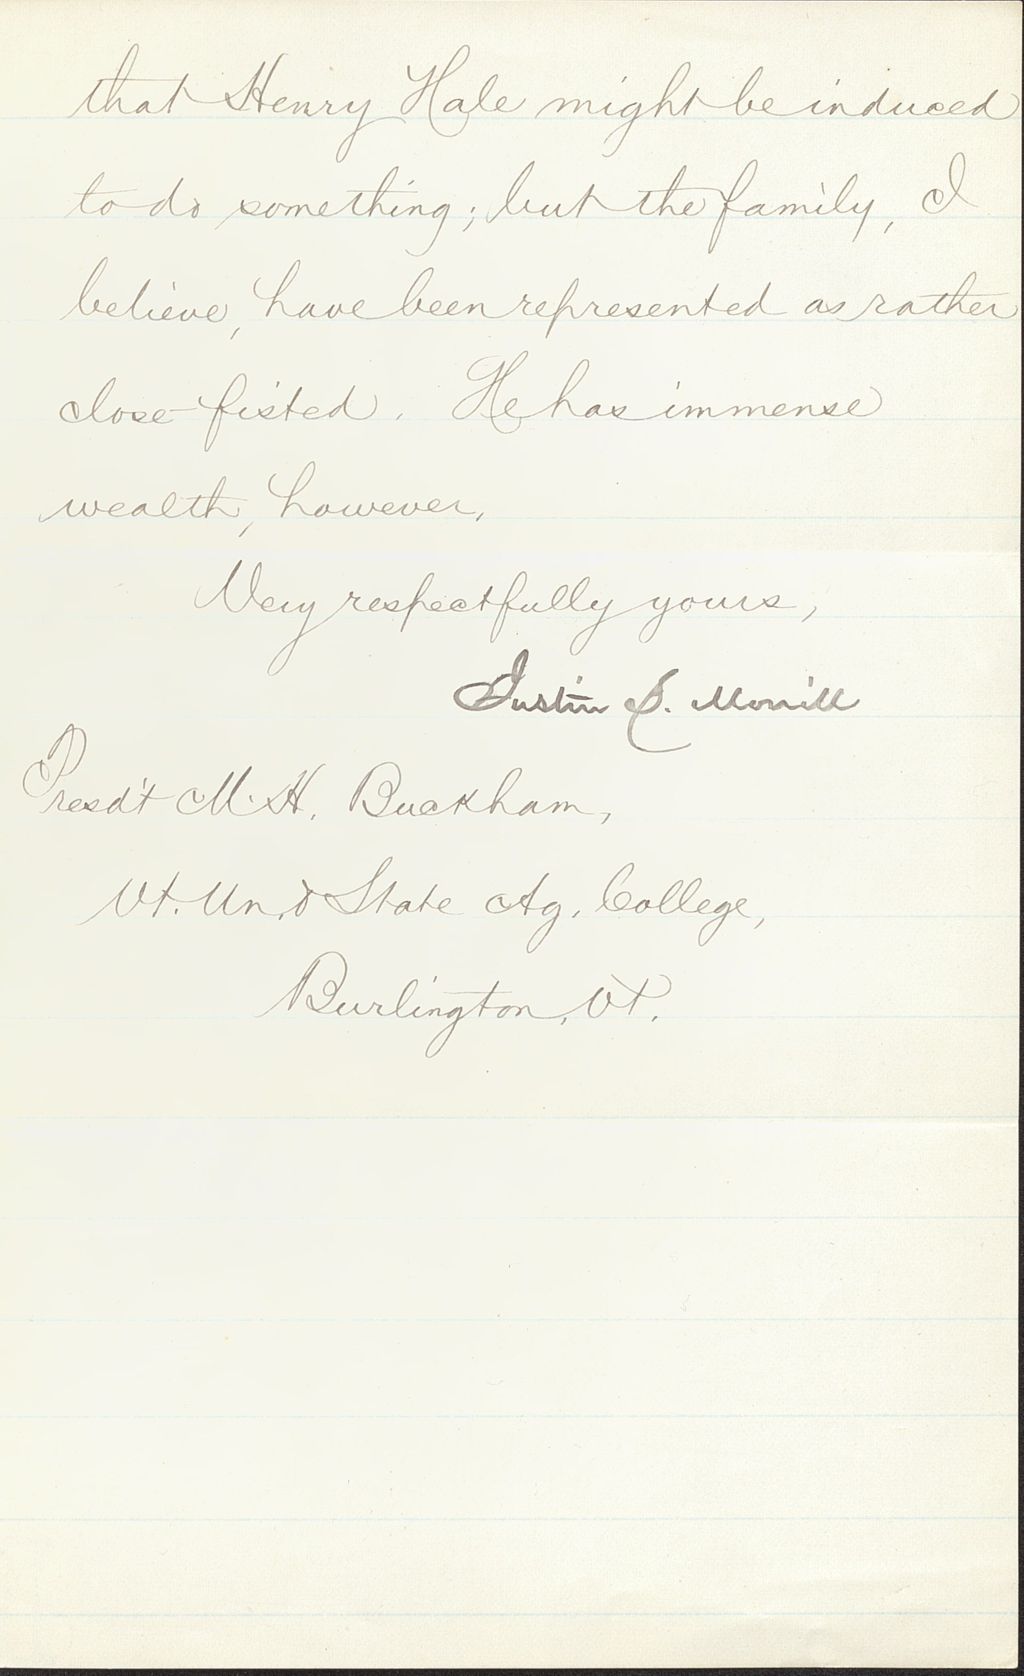 that Henry Hale might be induced
to do something; but the family, I
believe, have been represented as rather
close-fisted. He has immense
wealth, however.
Very respectfully yours,
Justin S. Morrill
Presd't M. H. Buckham,
Vt. Un. & State Ag. College,
Burlington, Vt.